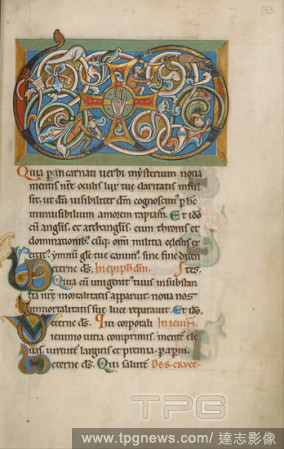 83
Quia p incarnati verbi mysterium noua
mentis nre oculis lux tue claritatis infulsit
sit. ut dum uisibiliter dm cognoscim' p hc
inuisibilium amorem rapiam'. Et ido
cu anglis. et archanglis. cum thronis et
dominationib'. cuq; omi militia celestis exercitus
ymnu gle tue canim'. sine fine dicentes
eterne ds. In epiph dni
Quia cu unigenit' tuus in substantia
nre mortalitatis apparuit. noua nos
immortalitatis sue luce reparauit. Et ido
eterne ds. Qui corporali In ieiun.
ieiunio uitia comprimis. mente eleuas.
uirtute largiris et premia. p xpm.
eterne ds. Qui salute De s. cruce.
TPG
www.tpgnews.com/達志影像